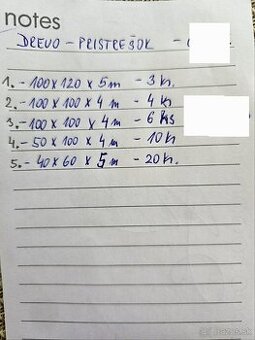 notes
DREVO - PRISTREŠOK -
1. - 100 x 120 x 5 m - 3 k.
2. - 100 x 100 x 4 m - 4 k
3. - 100 x 100 x 4 m - 6 ks
4. - 50 x 100 x 4 m - 10 k
5. - 40 x 60 x 5 m - 20 k.
bazos.sk